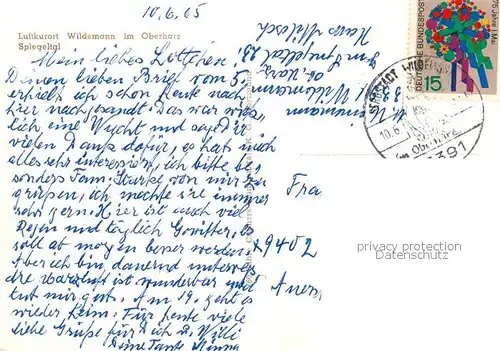 10.6.65
Luftkurort Wildemann im Oberharz
Spiegeltal
Mein liebes Lottchen!
Deinen lieben Brief vom 5.
erhielt ich schon heute nach
hier nachgesandt. Das war wirk
lich eine Wucht und sage Dir
vielen Dank dafür, es hat mich
alles sehr interessiert, ich bitte be
sonders Fam. Starke von mir zu
grüßen, ich möchte sie immer
sehr gern. Hier ist auch viel
Regen und täglich Gewitter, es
soll ab morgen besser werden.
Aber ich bin dauernd unterwegs
die Waldluft ist wunderbar und
tut mir gut. Am 19. geht es
wieder heim. Für heute viele
liebe Grüße für Dich u. Willi
Deine Tante Minna
Haus
Spiegeltal 28
Wildemann
Oberharz
75 Jahre 1. Mai
DEUTSCHE BUNDESPOST
15
BERGSTADT WILDEMANN
10.6.
im Oberharz
3391
Fra
2940 2
privacy protection
Datenschutz